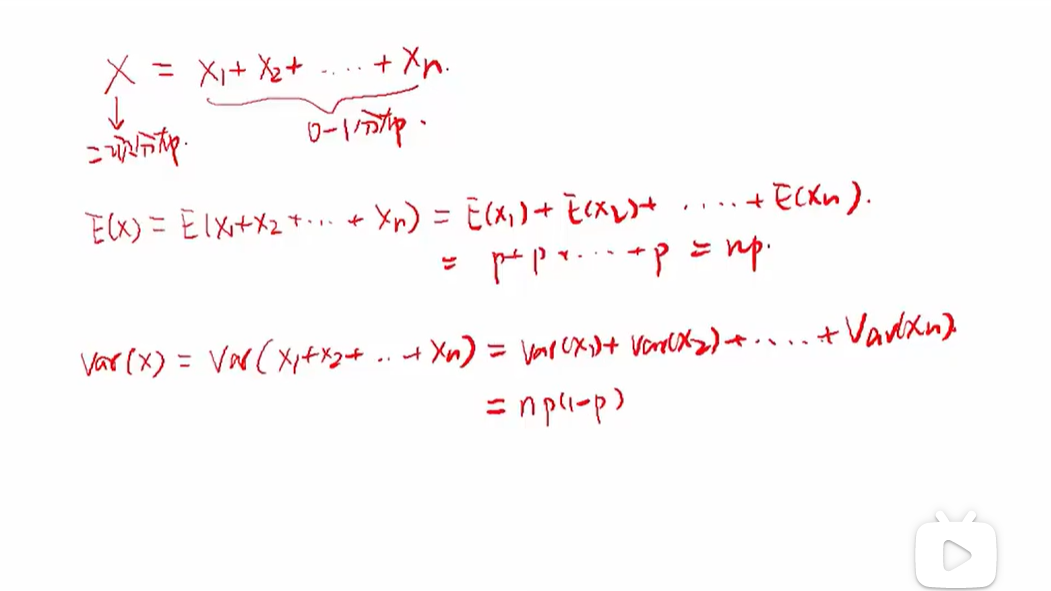 X = X₁ + X₂ + ····· + Xn.
0-1分布.
二项分布.
E(X) = E(X₁+X₂+···+Xn) = E(X₁)+E(X₂)+ ····· + E(Xn).
= p+p+····+p = np.
Var(X) = Var(X₁+X₂+···+Xn) = Var(X₁)+Var(X₂)+·····+Var(Xn).
= np(1-p)